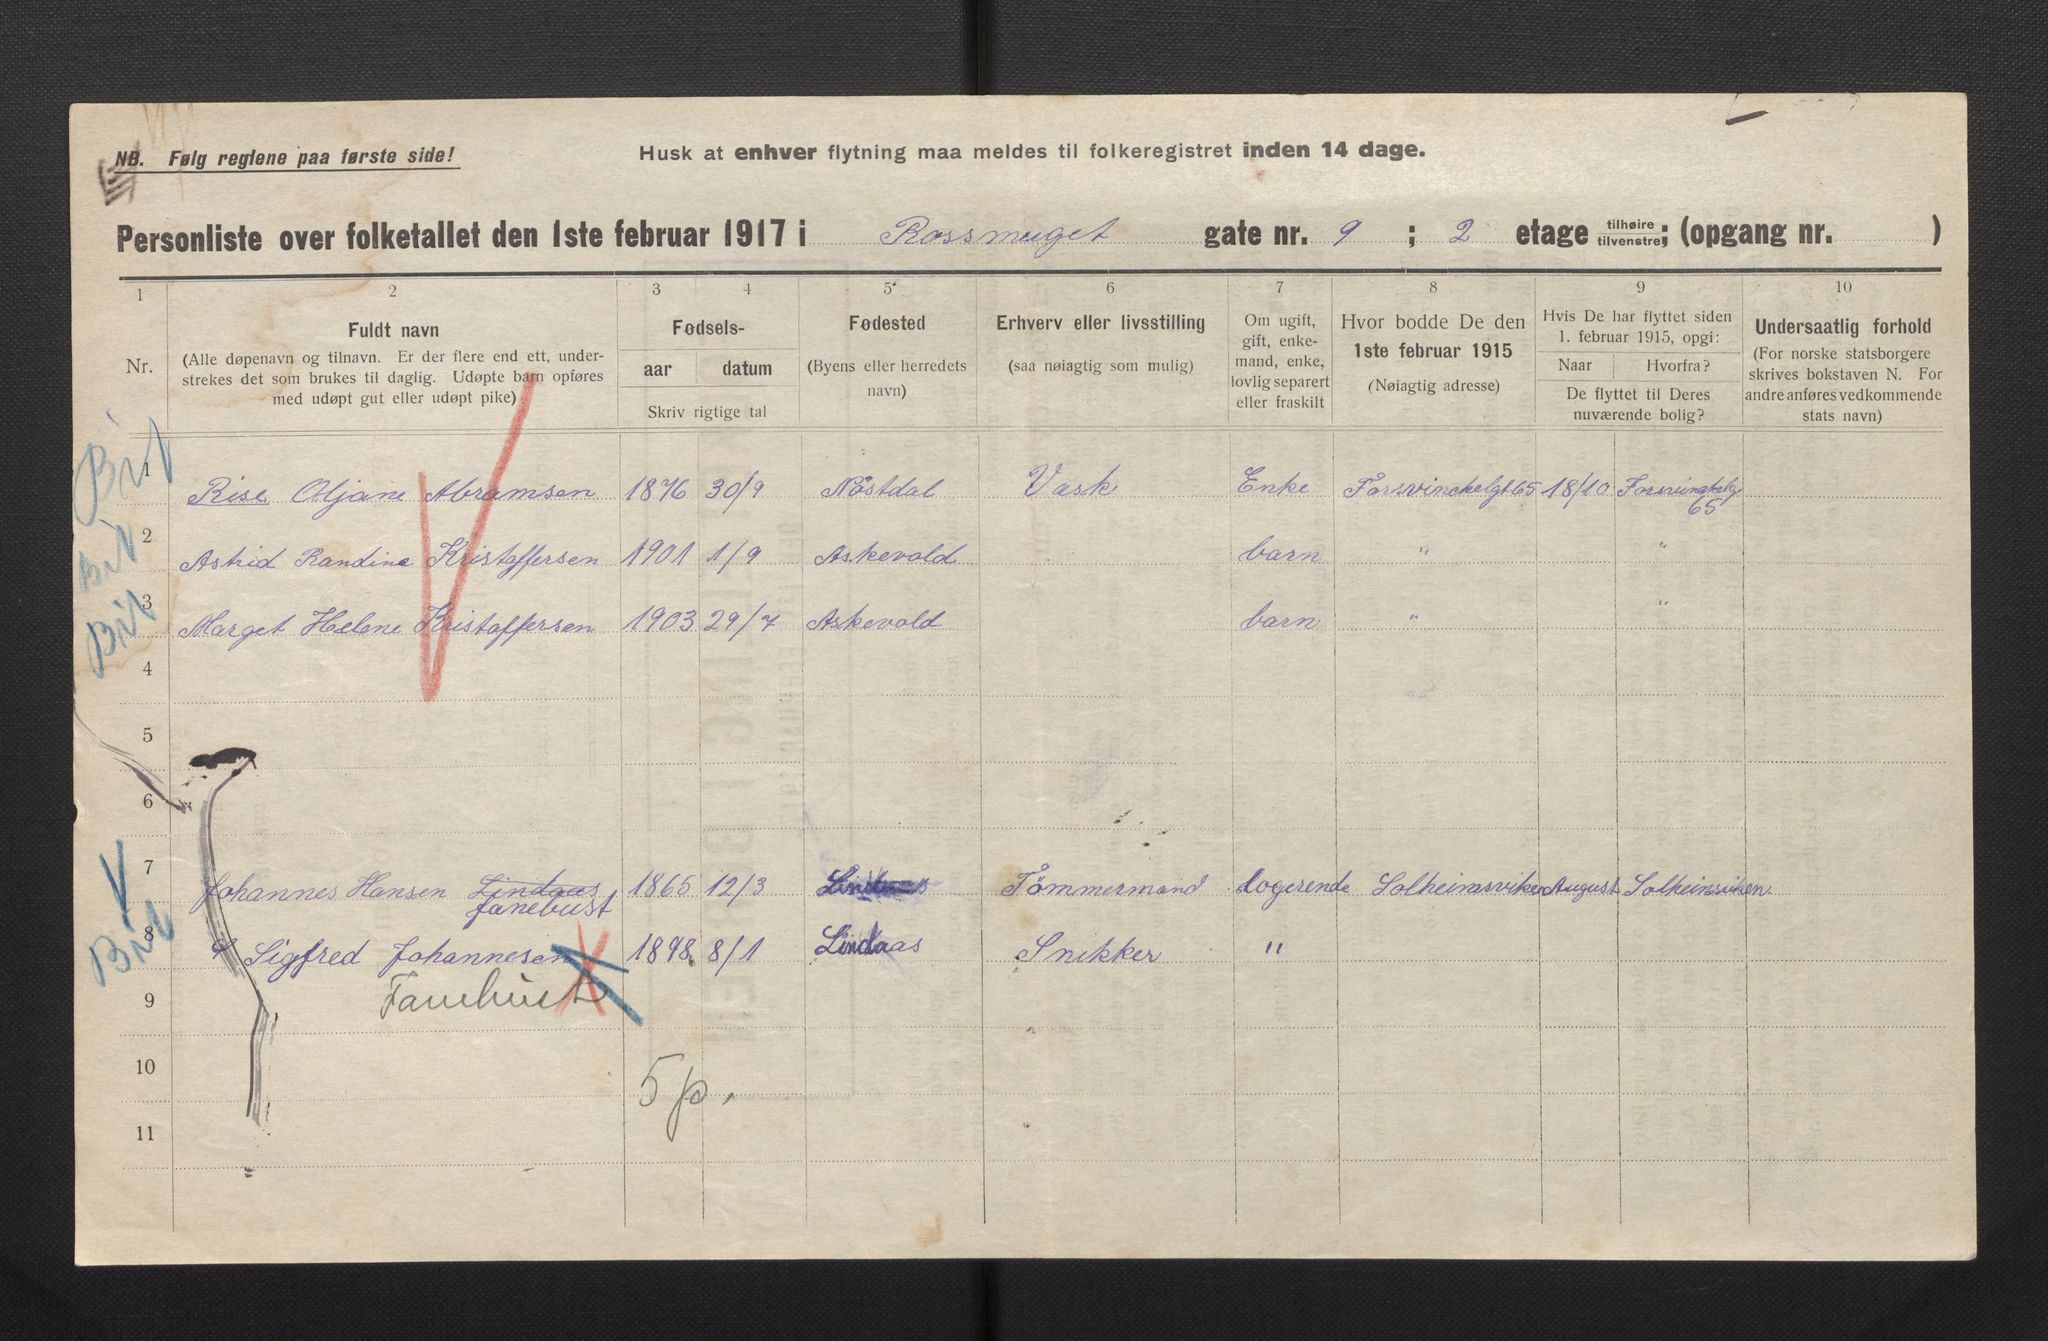 NB. Følg reglene paa første side!
Husk at enhver flytning maa meldes til folkeregistret inden 14 dage.
Personliste over folketallet den 1ste februar 1917 i Rossmuget gate nr. 9 ; 2 etage tilhøire tilvenstre; (opgang nr. )
1 2 3 4 5 6 7 8 9 10
Nr.
Fuldt navn
(Alle døpenavn og tilnavn. Er der flere end ett, under-
strekes det som brukes til daglig. Udøpte barn opføres
med udøpt gut eller udøpt pike)
Fødsels-
aar datum
Skriv rigtige tal
Fødested
(Byens eller herredets
navn)
Erhverv eller livsstilling
(saa nøiagtig som mulig)
Om ugift,
gift, enke-
mand, enke,
lovlig separert
eller fraskilt
Hvor bodde De den
1ste februar 1915
(Nøiagtig adresse)
Hvis De har flyttet siden
1. februar 1915, opgi:
Naar Hvorfra?
De flyttet til Deres
nuværende bolig?
Undersaatlig forhold
(For norske statsborgere
skrives bokstaven N. For
andre anføres vedkommende
stats navn)
1 Rise Oljane Abramsen 1876 30/9 Nöstdal Vask Enke Forsvinckelgt 65 18/10 Forsvinckelg 65
2 Astrid Randine Kristoffersen 1901 1/9 Askevold barn " "
3 Marget Helene Kristoffersen 1903 29/7 Askevold barn " "
4
5
6
7 Johannes Hansen Lindaas 1865 12/3 Lindaas Tömmermand logerende Solheimsviken August Solheimsviken
Fanebust
8 Sigfred Johannesen 1898 8/1 Lindaas Snikker "
9 Fanebust
10
5 p.
11